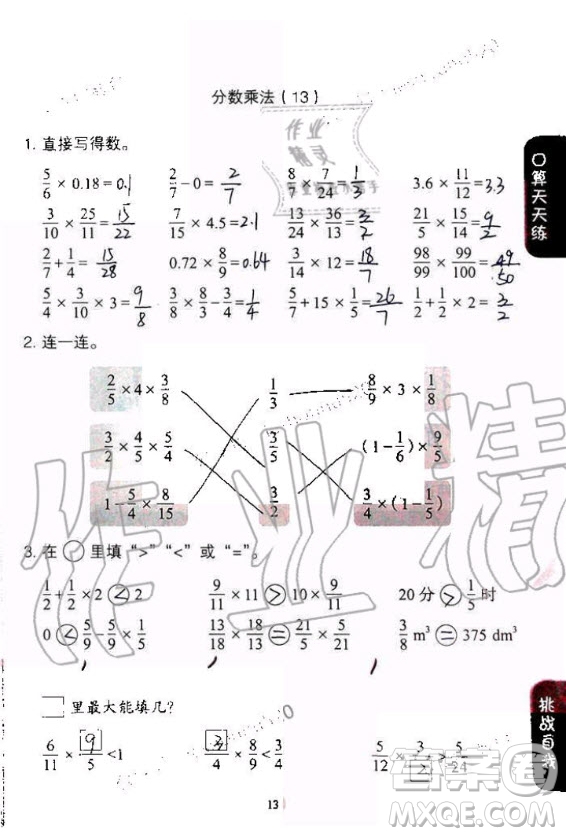 分数乘法（13）
1. 直接写得数。
5/6 × 0.18 = 0.1 2/7 − 0 = 2/7 8/7 × 7/24 = 1/3 3.6 × 11/12 = 3.3
3/10 × 25/11 = 15/22 7/15 × 4.5 = 2.1 13/24 × 36/13 = 3/2 21/5 × 15/14 = 9/2
2/7 + 1/4 = 15/28 0.72 × 8/9 = 0.64 3/14 × 12 = 18/7 98/99 × 99/100 = 49/50
5/4 × 3/10 × 3 = 9/8 3/8 × 8/3 − 3/4 = 1/4 5/7 + 15 × 1/5 = 26/7 1/2 + 1/2 × 2 = 3/2
2. 连一连。
2/5 × 4 × 3/8 1/3 8/9 × 3 × 1/8
3/2 × 4/5 × 5/4 3/5 (1 − 1/6) × 9/5
1 − 5/4 × 8/15 3/2 3/4 × (1 − 1/5)
3. 在○里填“>”“<”或“=”。
1/2 + 1/2 × 2 < 2 9/11 × 11 > 10 × 9/11 20分 > 1/5时
0 < 5/9 − 5/9 × 1/5 13/18 × 18/13 = 21/5 × 5/21 3/8 m³ = 375 dm³
□里最大能填几?
6/11 × 9/5 < 1 3/4 × 8/9 < 3/4 5/12 × 3/2 > 5/24
13
算天天练
挑战自我
作业
精灵
作业精
答案圈
MXQE.COM